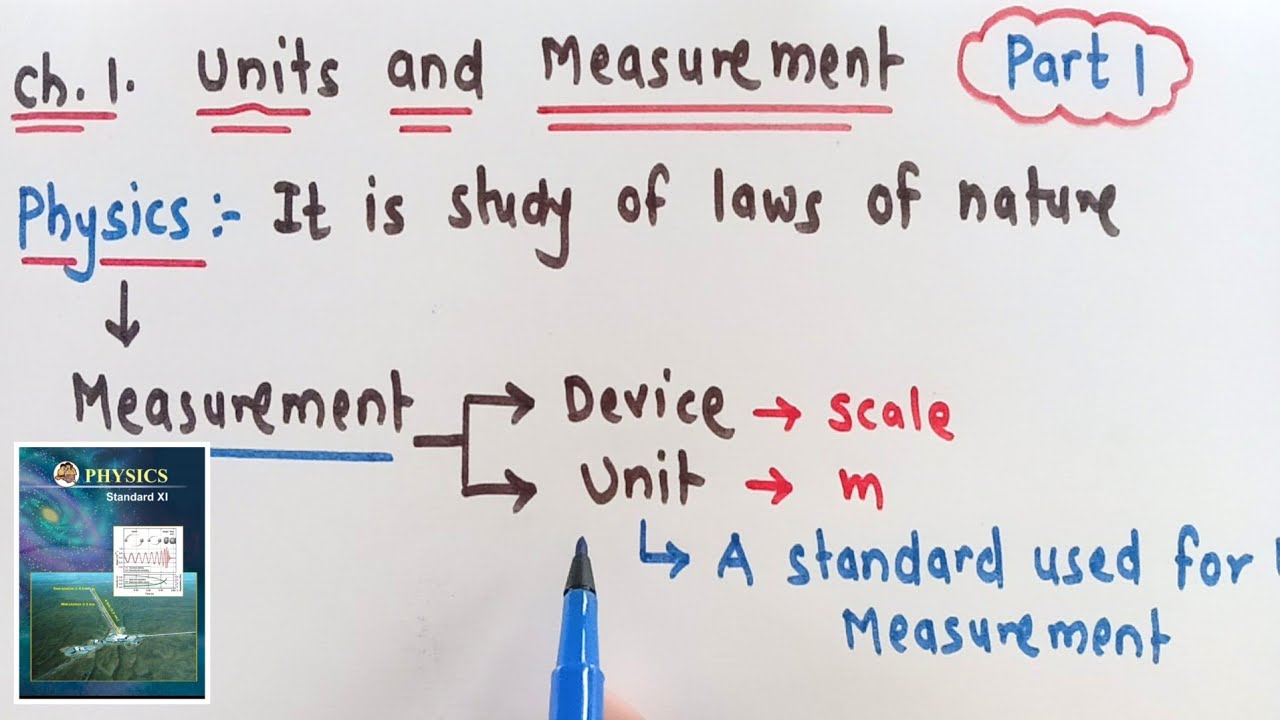 Ch. 1. Units and Measurement
Part 1
Physics :- It is study of laws of nature
Measurement
Device → scale
Unit → m
↳ A standard used for
Measurement
PHYSICS
Standard XI